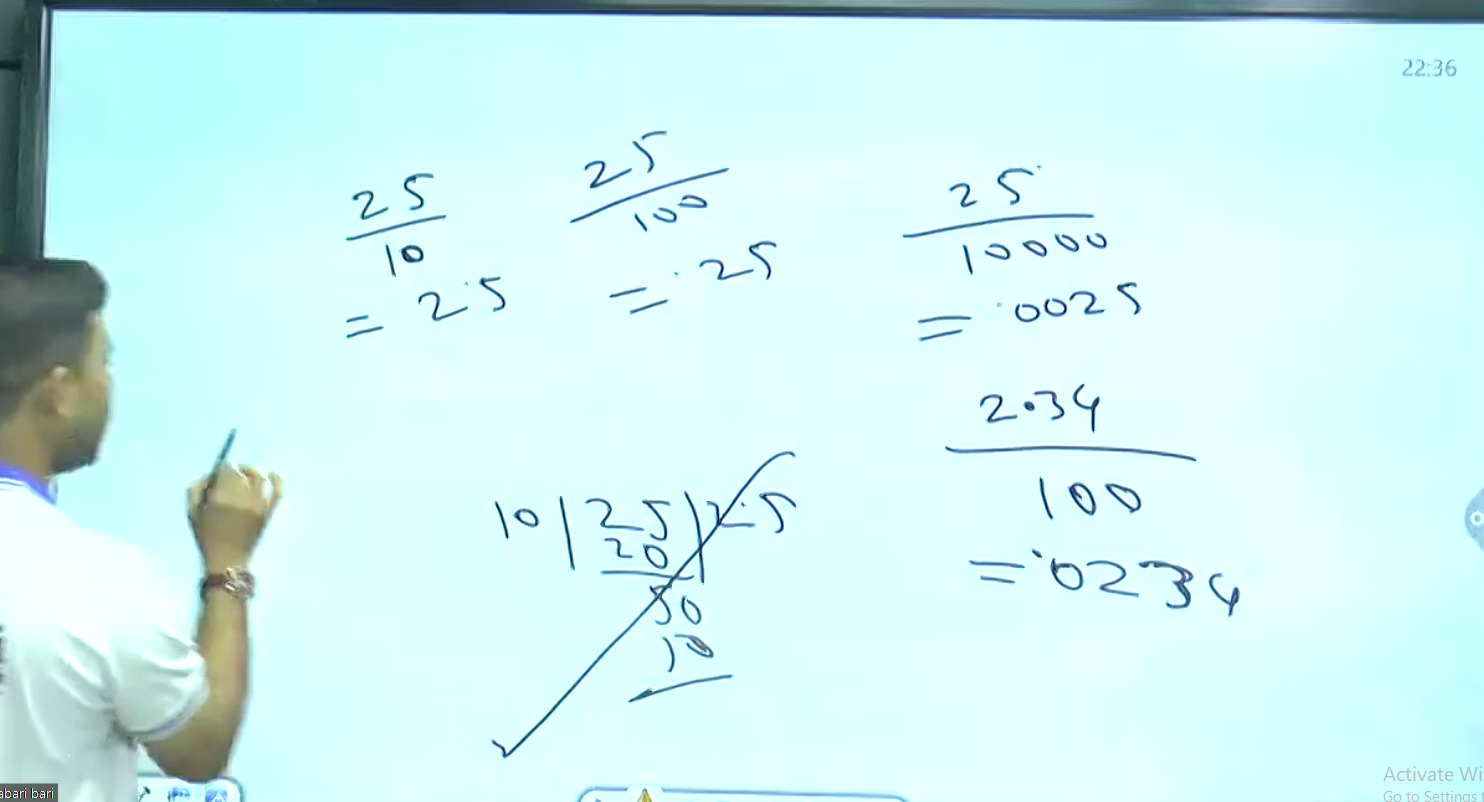 22:36
25
10
= 2.5
25
100
= .25
25
10000
= .0025
2.34
100
= .0234
10 | 25 | 2.5
20
50
10
abari bari
Activate Wi
Go to Settings